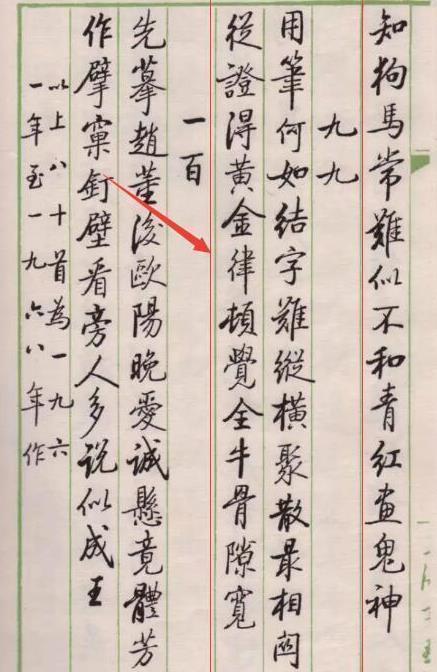 知狗馬常難似不和青紅畫鬼神
九九
用筆何如結字難縱橫聚散最相関
從證得黃金律頓覺全牛骨隙寬
一百
先摹趙董後歐陽晚愛誠懸竟體芳
作擘窠釘壁看旁人多說似成王
以上八十首為一九六
一年至一九六八年作